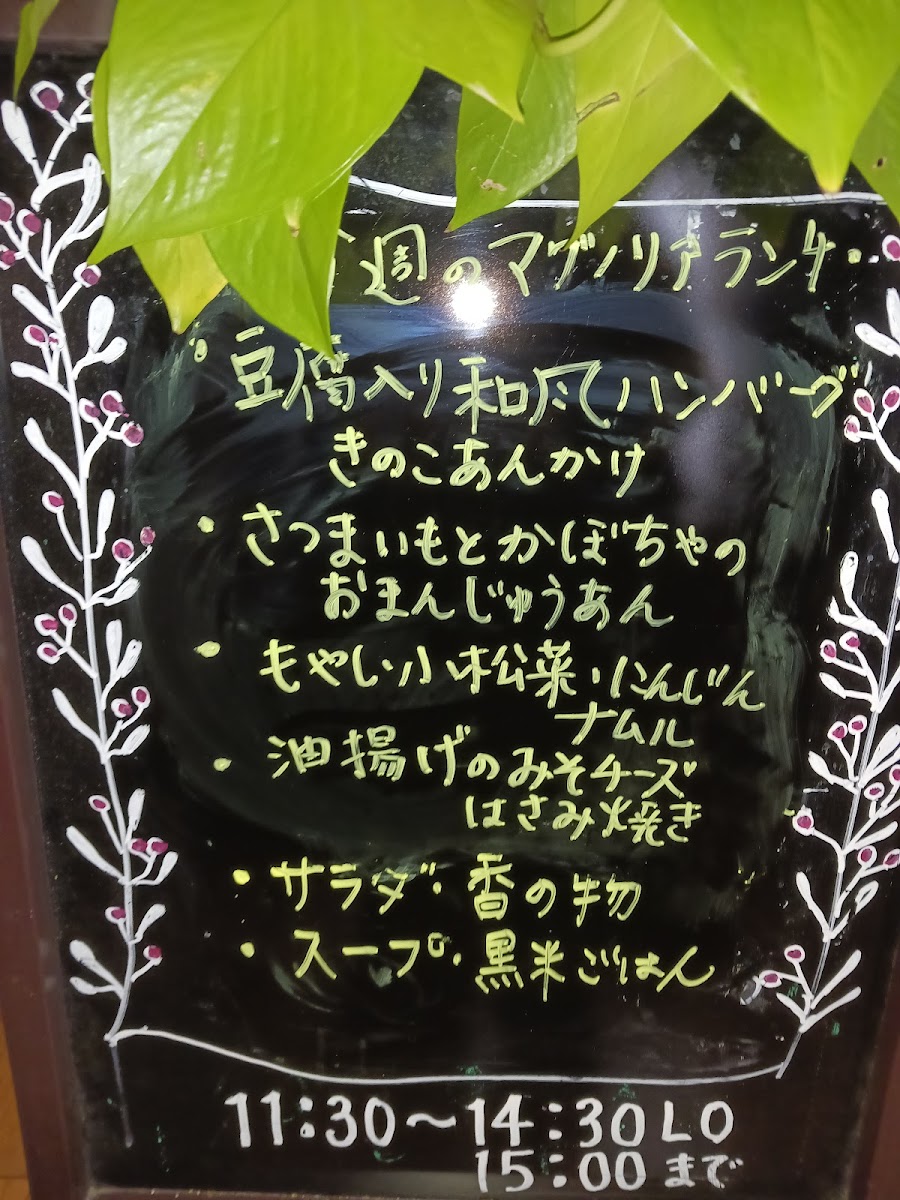 週のマグノリアランチ・
・豆腐入り和風ハンバーグ
きのこあんかけ
・さつまいもとかぼちゃの
おまんじゅうあん
・もやし小松菜・にんじん
ナムル
・油揚げのみそチーズ
はさみ焼き
・サラダ・香の物
・スープ・黒米ごはん
11:30〜14:30LO
15:00まで